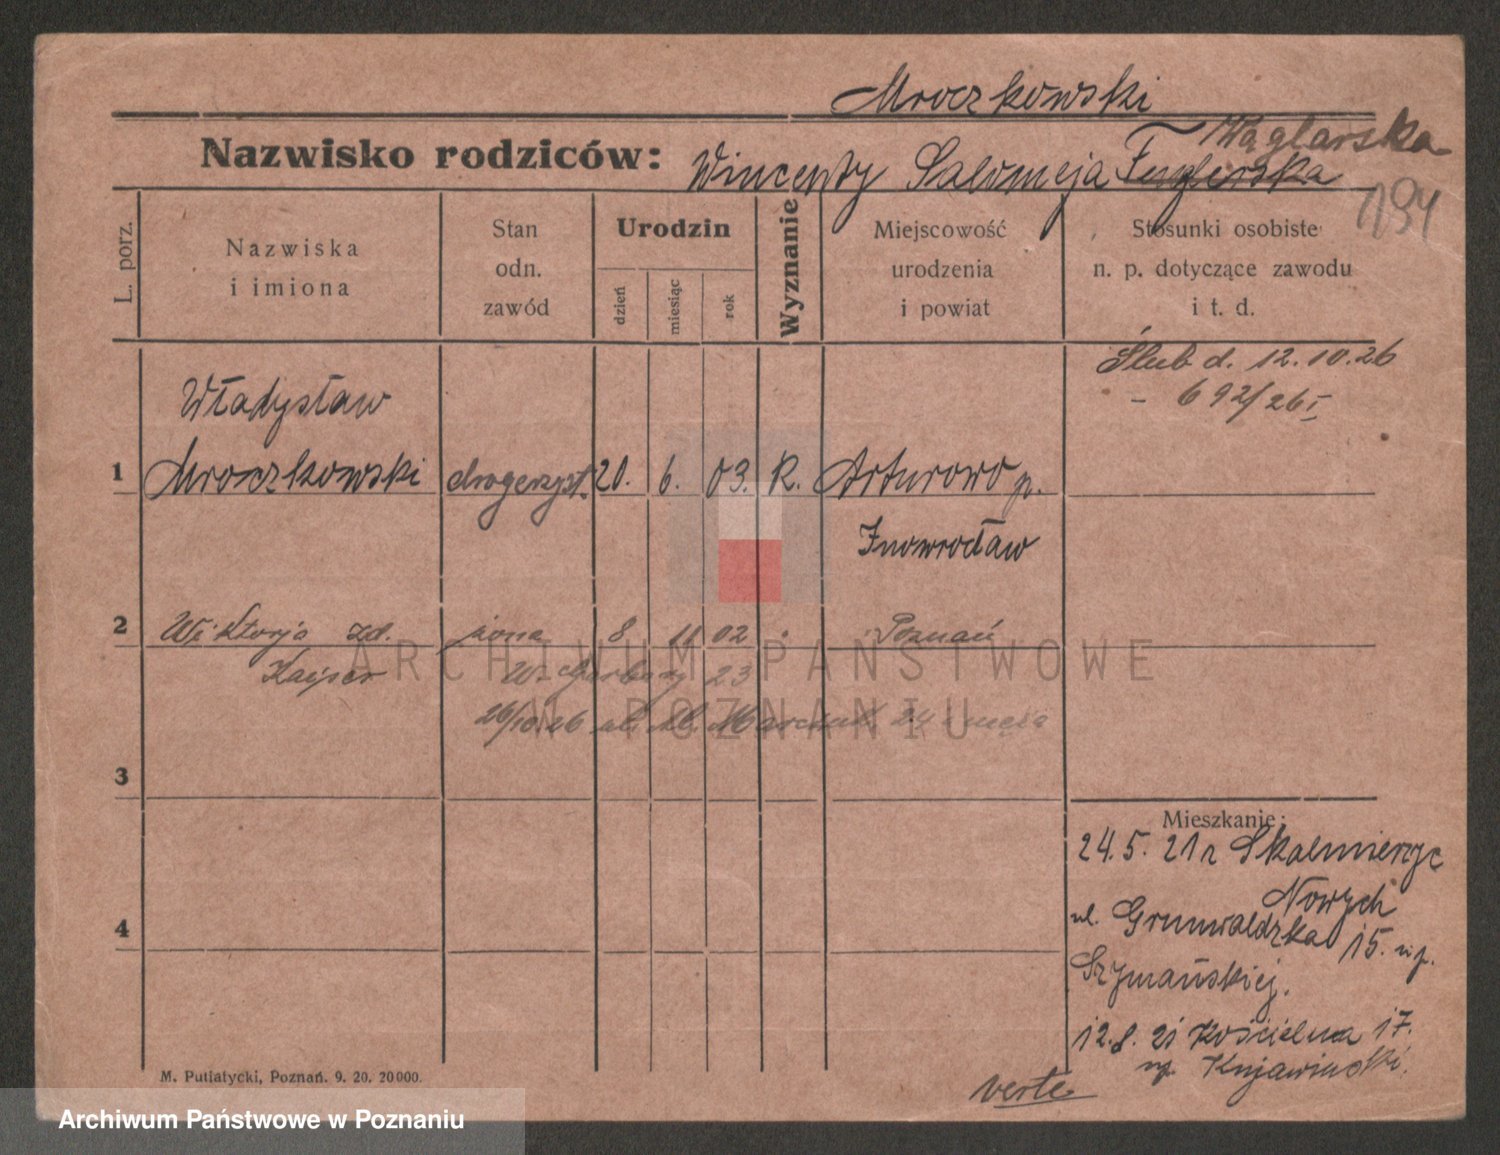 Mroczkowski
Węglarska
Nazwisko rodziców: Wincenty Salomeja Fuglerska
1194
L. porz.
Nazwiska
i imiona
Stan
odn.
zawód
Urodzin
dzień
miesiąc
rok
Wyznanie
Miejscowość
urodzenia
i powiat
Stosunki osobiste
n. p. dotyczące zawodu
i t. d.
Ślub d. 12.10.26
- 692/26 I
Władysław
1 Mroczkowski drogerzyst. 20. 6. 03. R. Arturowo p.
Inowrocław
2 Wiktorja zd. żona 8 11 02 Poznań
Kajser W. Garbary 23
26/10.26 ul. Marcin 24 męża
ARCHIWUM PAŃSTWOWE
W POZNANIU
3
Mieszkanie:
24.5.21 z Skalmierzyc
Nowych
4
ul. Grunwaldzka 15. u p.
Szymańskiej.
12.8.21 Kościelna 17.
up. Kujawiński.
verte
M. Putiatycki, Poznań. 9. 20. 20000.
Archiwum Państwowe w Poznaniu